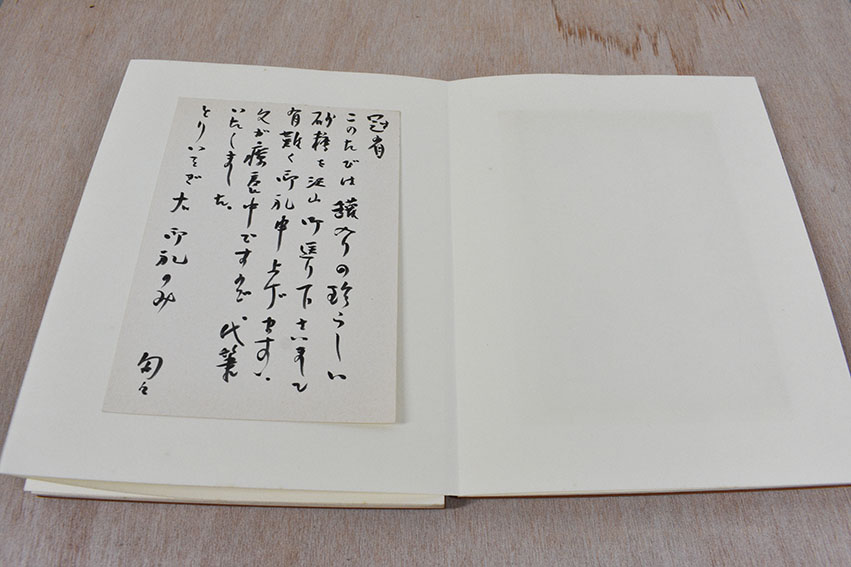 冠省
このたびは 入りの珍らしい
砂糖を沢山御送り下さいまして
有難く御礼申上げます
父が療養中ですので、代筆
いたしました。
とりいそぎ右御礼のみ
匆々